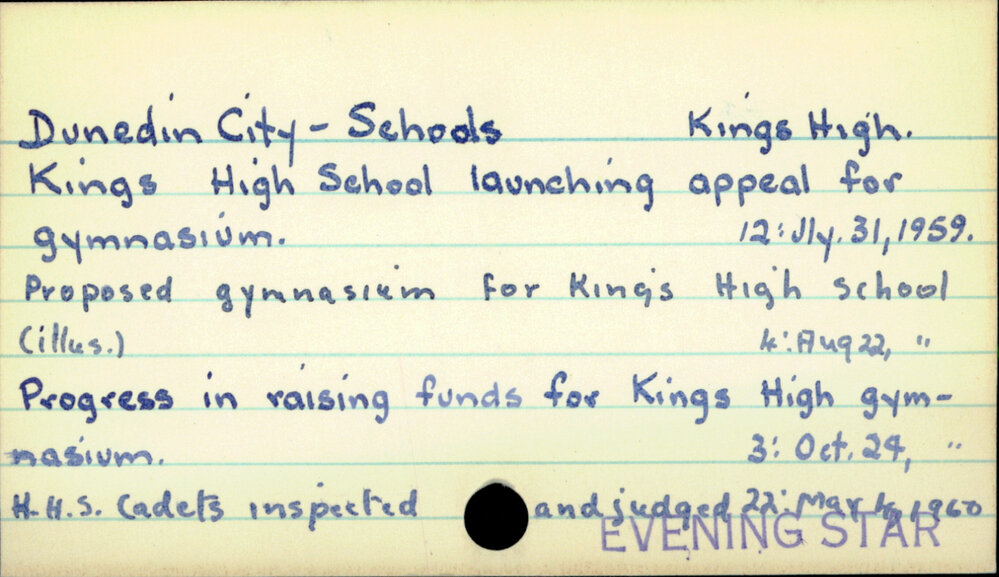 Dunedin City - Schools Kings High.
Kings High School launching appeal for
gymnasium. 12: Jly. 31, 1959.
Proposed gymnasium for King's High School
(illus.) 4: Aug 22, "
Progress in raising funds for Kings High gym-
nasium. 3: Oct. 24, "
H.H.S. Cadets inspected and judged 22: Mar 1960
EVENING STAR